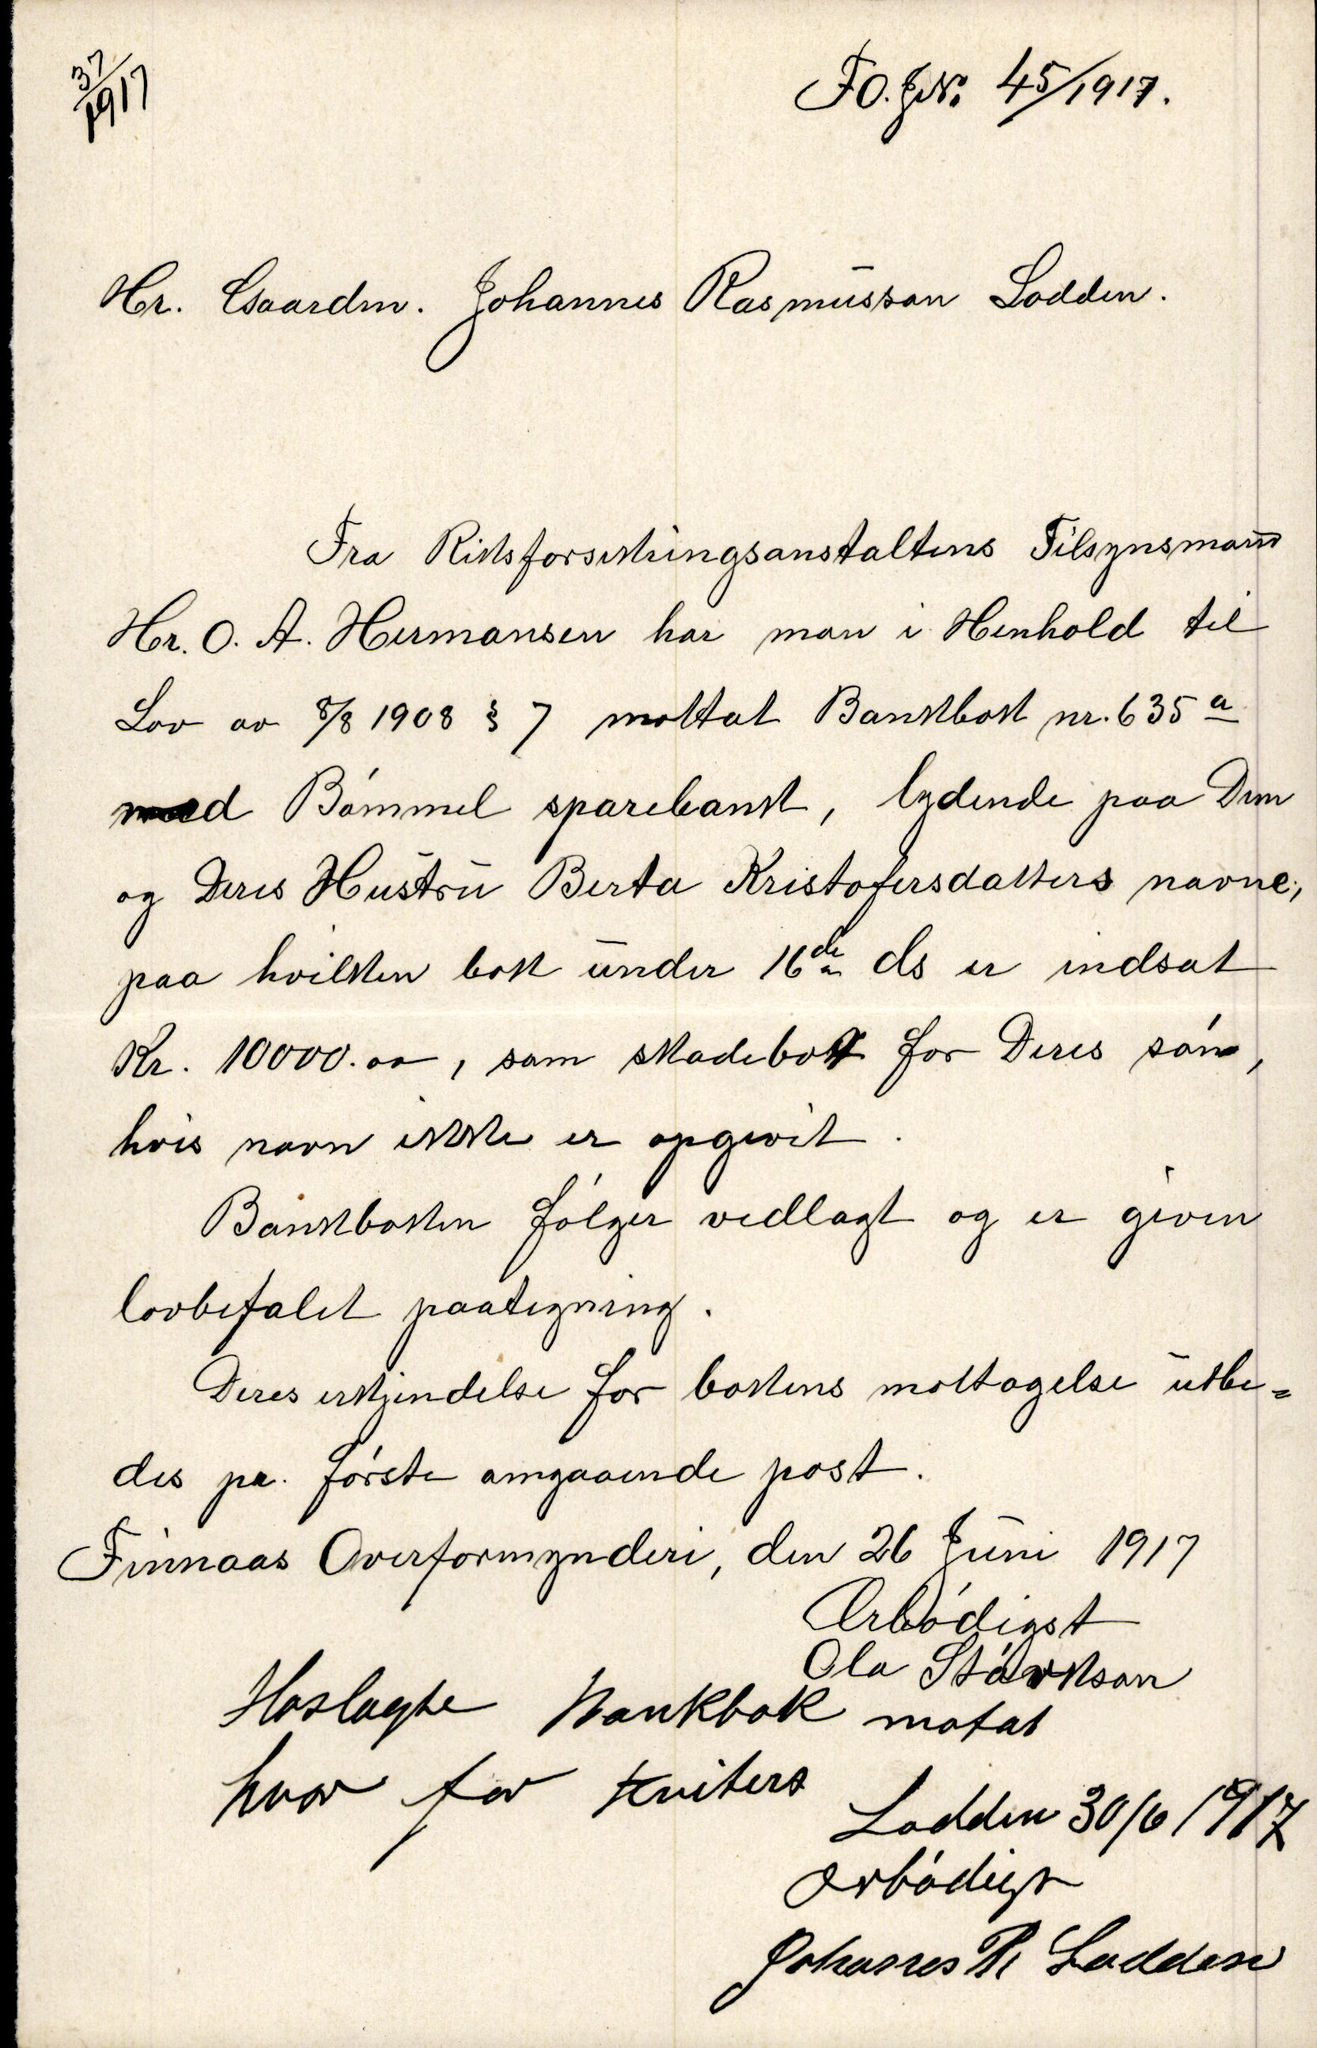 37/1917
FO. JNr. 45/1917.
Hr. Gaardm. Johannes Rasmusson Lodden.
Fra Riksforsikringsanstaltens Tilsynsmann
Hr. O. A. Hermansen har man i Henhold til
Lov av 8/8 1908 § 7 mottat Bankbok nr. 635 a
med Bómmel sparebank, lydende paa Dem
og Deres Hustru Berta Kristofersdatters navne,
paa hvilken bok under 16de ds er indsat
Kr. 10000.oo, som skadebot for Deres són,
hvis navn ikke er opgivit.
Bankboken fólger vedlagt og er given
lovbefalet paategning.
Deres erkjendelse for bokens mottagelse utbe=
des pr. fórste omgaaende post.
Finnaas Overformynderi, den 26 Juni 1917
Ærbódigst
Ola Stórkson
Hoslagte Bankbok motat
hvor for kviters
Lodden 30/6 1917
ærbódigst
Johannes R Lodden